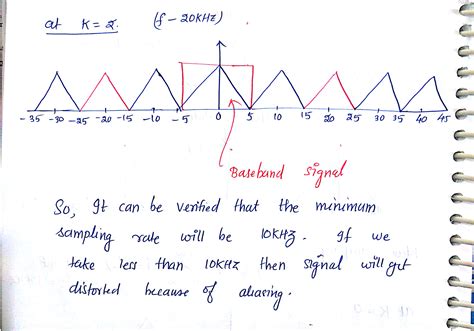 at K=2. (f-20KHz)
-35 -30 -25 -20 -15 -10 -5 0 5 10 15 20 25 30 35 40 45
Baseband signal
So, It can be verified that the minimum
sampling rate will be 10KHz. If we
take less than 10KHz then signal will get
distorted because of aliasing.